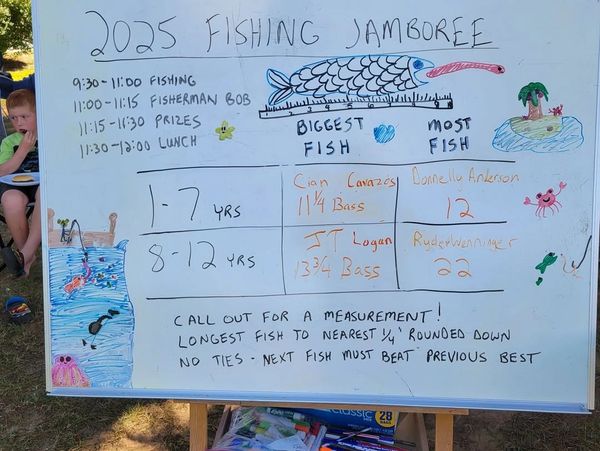 2025 FISHING JAMBOREE
9:30-11:00 FISHING
11:00-11:15 FISHERMAN BOB
11:15-11:30 PRIZES
11:30-12:00 LUNCH
BIGGEST FISH
MOST FISH
1-7 YRS
Cian Cavazos
11 1/4 Bass
Donnelly Anderson
12
8-12 YRS
JT Logan
13 3/4 Bass
Ryder Wenninger
22
CALL OUT FOR A MEASUREMENT!
LONGEST FISH TO NEAREST 1/4" ROUNDED DOWN
NO TIES - NEXT FISH MUST BEAT PREVIOUS BEST
CLASSIC
28